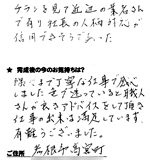 チラシを見て近辺の業者さん
で有り社長の人柄対応が
信用できそうであった
★ 完成後の今のお気持ちは?
隅々まで丁寧な仕事で感心
しました 色で迷っていると職人
さんが色々アドバイスをして頂き
仕事の出来も満足しています、
有難うございました。
ご住所 彦根市高宮町